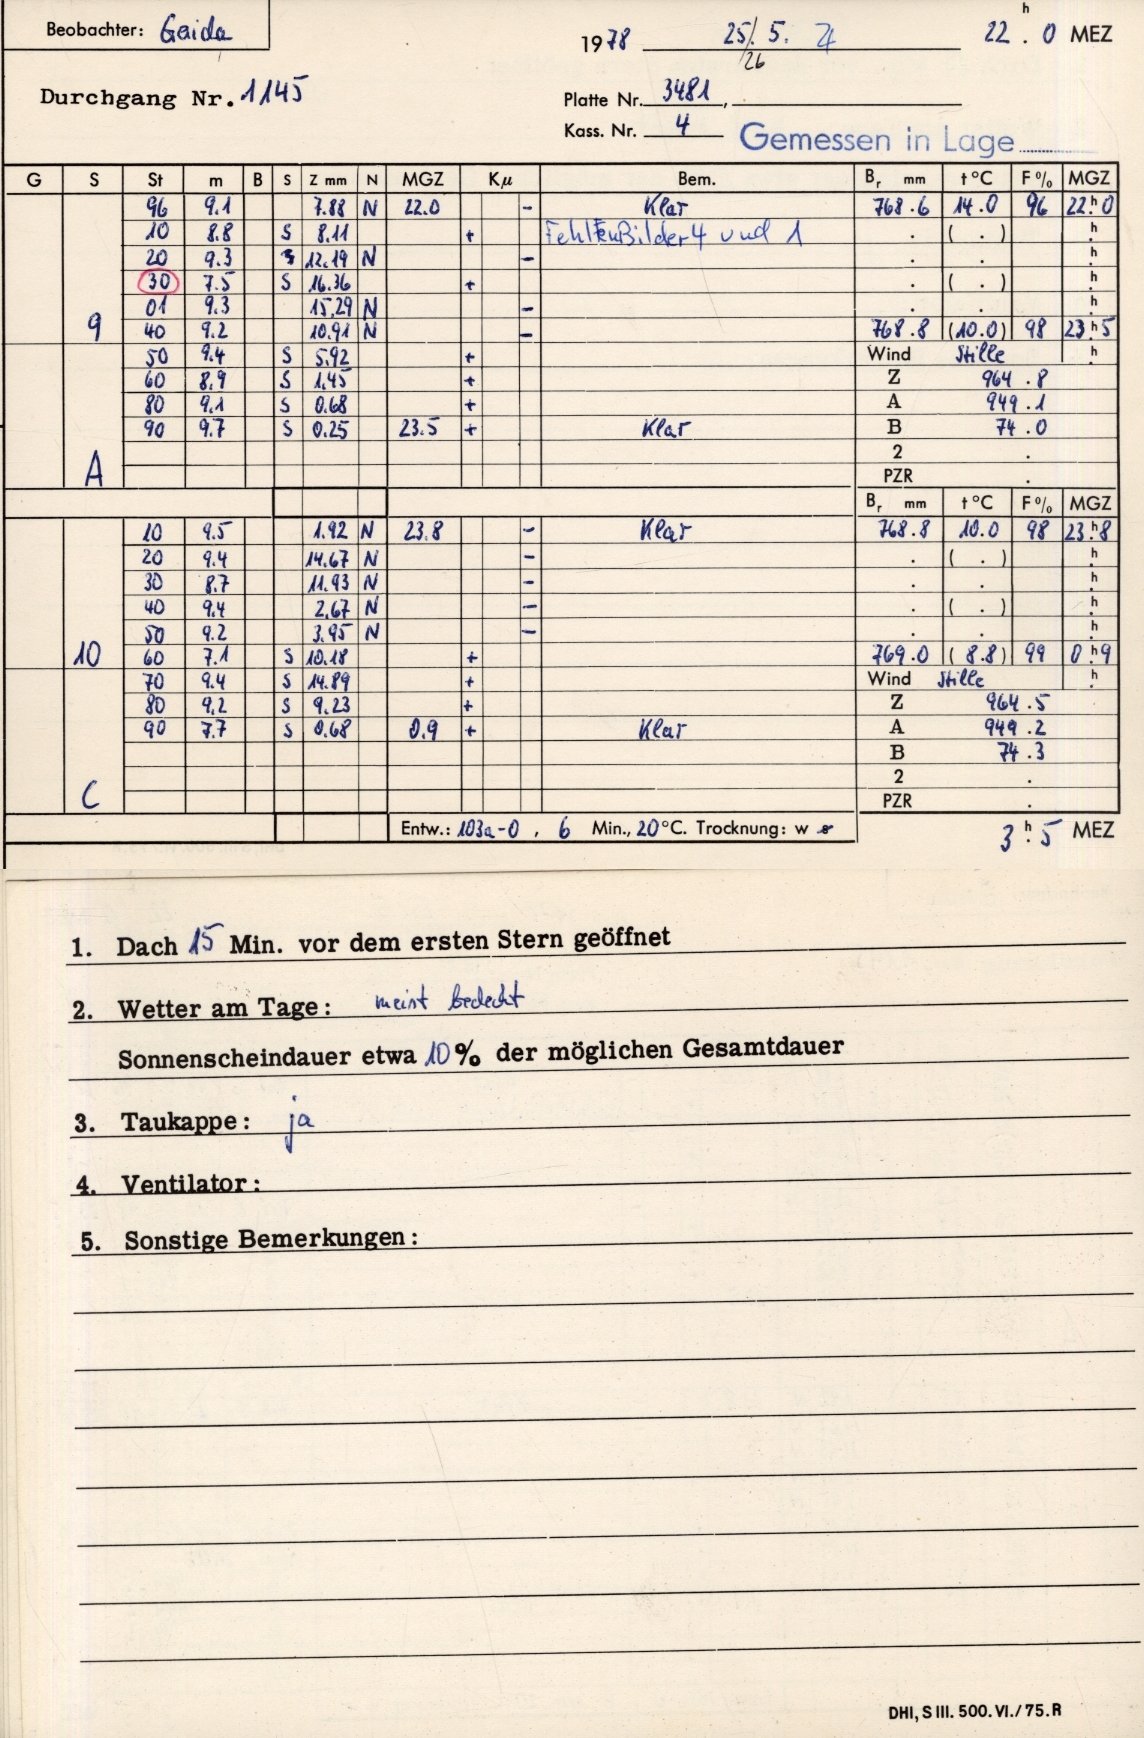 Beobachter: Gaida
1978 25/26. 5. ♃ 22 h . 0 MEZ
Durchgang Nr. 1145
Platte Nr. 3481 ,
Kass. Nr. 4
Gemessen in Lage
G S St m B S Z mm N MGZ Kµ Bem. Br mm t °C F % MGZ
96 9.1 7.88 N 22.0 - Klar 768.6 14.0 96 22 h 0
10 8.8 S 8.11 + Fehlen Bilder 4 und 1 . ( . ) h
20 9.3 12.19 N - . . h
30 7.5 S 16.36 + . ( . ) h
01 9.3 15.29 N - . . h
9 40 9.2 10.91 N - 768.8 (10.0) 98 23 h 5
50 9.4 S 5.92 + Wind Stille h
60 8.9 S 1.45 + Z 964.8
80 9.1 S 0.68 + A 949.1
90 9.7 S 0.25 23.5 + Klar B 74.0
2 .
A PZR .
Br mm t °C F % MGZ
10 9.5 1.92 N 23.8 - Klar 768.8 10.0 98 23 h 8
20 9.4 14.67 N - . ( . ) h
30 8.7 11.93 N - . . h
40 9.4 2.67 N - . ( . ) h
50 9.2 3.95 N - . . h
10 60 7.1 S 10.18 + 769.0 (8.8) 99 0 h 9
70 9.4 S 14.89 + Wind Stille h
80 9.2 S 9.23 + Z 964.5
90 7.7 S 0.68 0.9 + Klar A 949.2
B 74.3
2 .
C PZR .
Entw.: 103a-0 , 6 Min., 20 °C. Trocknung: w 3 h . 5 MEZ
1. Dach 15 Min. vor dem ersten Stern geöffnet
2. Wetter am Tage: meist bedeckt
Sonnenscheindauer etwa 10 % der möglichen Gesamtdauer
3. Taukappe: ja
4. Ventilator:
5. Sonstige Bemerkungen:
DHI, S III. 500. VI./75. R